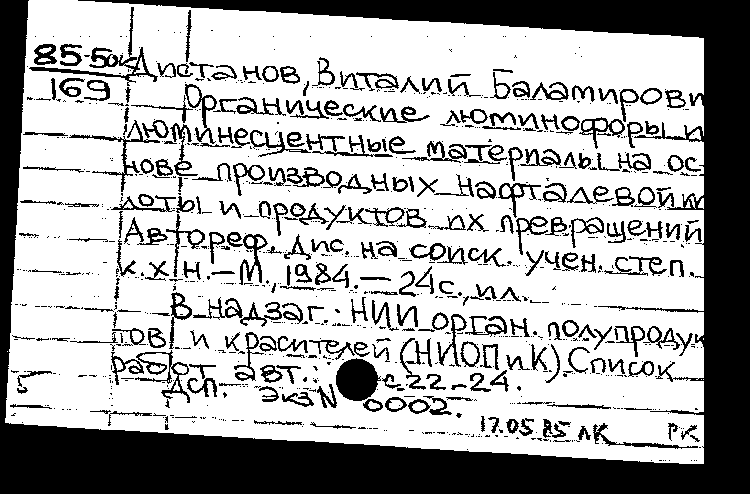 85-5ок Дистанов, Виталий Баламирови
169 Органические люминофоры и
люминесцентные материалы на ос-
нове производных нафталевой ки
лоты и продуктов их превращений
Автореф. дис. на соиск. учен. степ.
к.х.н. – М., 1984. – 24с., ил.
В надзаг.: НИИ орган. полупродук
тов и красителей (НИОПиК). Список
работ авт.: с. 22-24.
5 ДСП. Экз N 0002.
17.05.85 ЛК РК